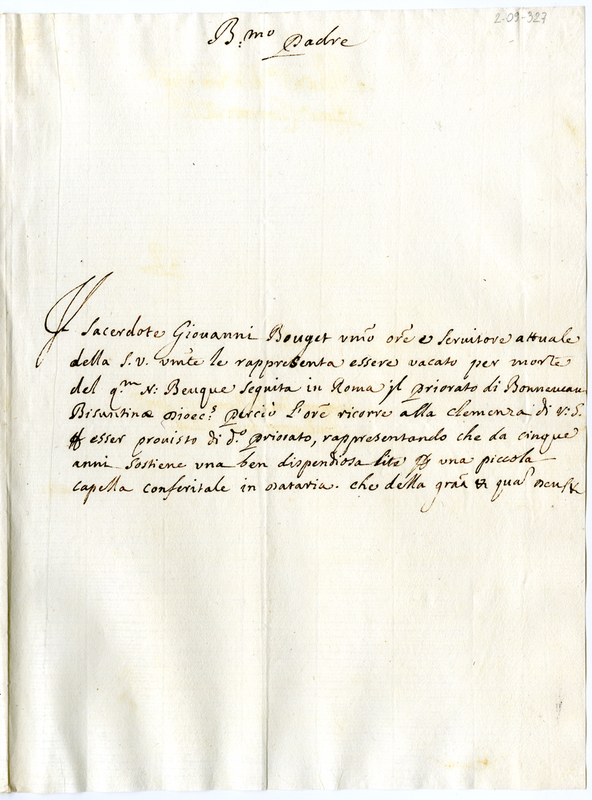 2-09-327
B.mo Padre
Il Sacerdote Giouanni Bouget vmo ore e Seruitore attuale
della S. V. vmte le rappresenta essere vacato per morte
del qm N: Beuque seguita in Roma jl Priorato di Bonneueau
Bisuntinæ Dioec.s Perciò l'ore ricorre alla clemenza di V: S.
esser prouisto di d.o Priorato, rappresentando che da cinque
anni sostiene vna ben dispendiosa lite vna piccola
capella conferitale in Dataria. che della gra &